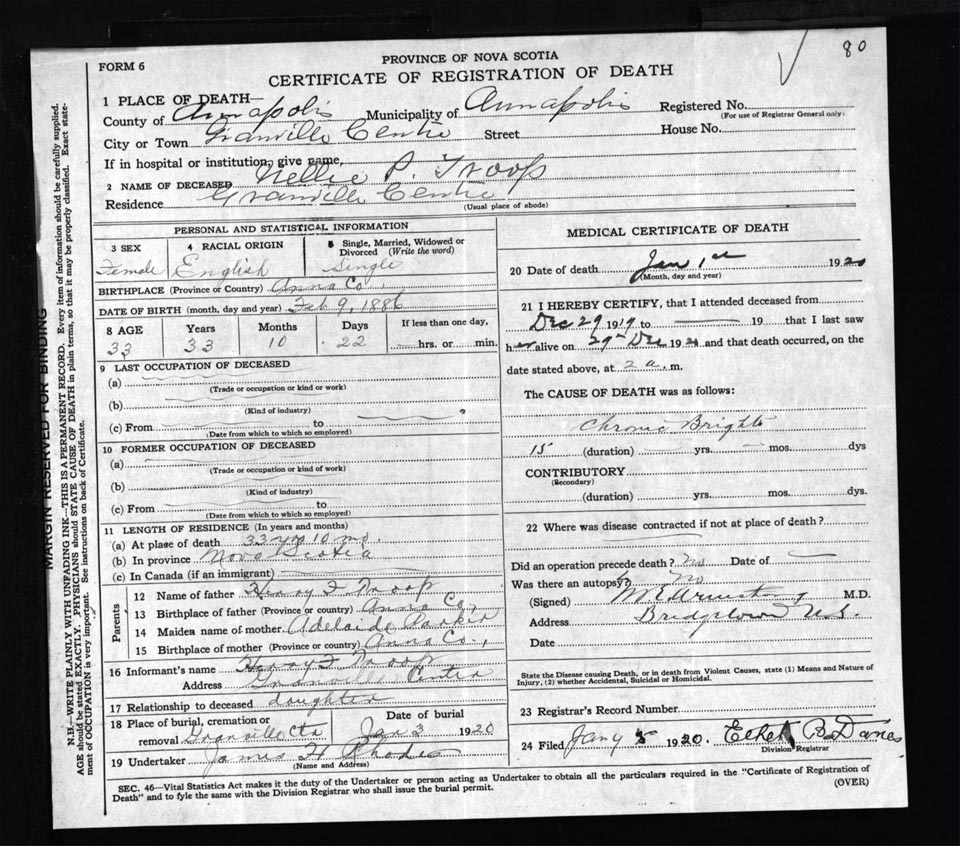 80
FORM 6
PROVINCE OF NOVA SCOTIA
CERTIFICATE OF REGISTRATION OF DEATH
1 PLACE OF DEATH—
County of Annapolis Municipality of Annapolis Registered No.
(For use of Registrar General only)
City or Town Granville Centre Street House No.
If in hospital or institution, give name,
2 NAME OF DECEASED Nellie P. Troop
Residence Granville Centre
(Usual place of abode)
PERSONAL AND STATISTICAL INFORMATION
3 SEX 4 RACIAL ORIGIN 5 Single, Married, Widowed or Divorced (Write the word)
Female English Single
BIRTHPLACE (Province or Country) Anna Co.,
DATE OF BIRTH (month, day and year) Feb 9, 1886
8 AGE Years Months Days If less than one day,
33 33 10 22 hrs. or min.
9 LAST OCCUPATION OF DECEASED
(a)
(Trade or occupation or kind or work)
(b)
(Kind of industry)
(c) From to
(Date from which to which so employed)
10 FORMER OCCUPATION OF DECEASED
(a)
(Trade or occupation or kind of work)
(b)
(Kind of industry)
(c) From to
(Date from which to which so employed)
11 LENGTH OF RESIDENCE (In years and months)
(a) At place of death 33 yrs 10 mo.
(b) In province Nova Scotia
(c) In Canada (if an immigrant)
Parents
12 Name of father Henry F Troop
13 Birthplace of father (Province or country) Anna Co,
14 Maiden name of mother Adelaide Parker
15 Birthplace of mother (Province or country) Anna Co.,
16 Informant's name Henry F Troop
Address Granville Centre
17 Relationship to deceased daughter
18 Place of burial, cremation or removal Granville Cta Date of burial Jan 3 1920
19 Undertaker James H Rhodes
(Name and Address)
MEDICAL CERTIFICATE OF DEATH
20 Date of death Jan 1st 1920
(Month, day and year)
21 I HEREBY CERTIFY, that I attended deceased from
Dec 29 1919 to 19 that I last saw
her alive on 29th Dec 19 and that death occurred, on the
date stated above, at 2 a. m.
The CAUSE OF DEATH was as follows:
Chronic Brights
15 (duration) yrs. mos. dys
CONTRIBUTORY
(Secondary)
(duration) yrs. mos. dys.
22 Where was disease contracted if not at place of death?
Did an operation precede death? No Date of
Was there an autopsy? No
(Signed) M E Armstrong M.D.
Address Bridgetown N.S
Date
State the Disease causing Death, or in death from Violent Causes, state (1) Means and Nature of
Injury, (2) whether Accidental, Suicidal or Homicidal.
23 Registrar's Record Number
24 Filed Jany 5 1920. B
Division Registrar
SEC. 46—Vital Statistics Act makes it the duty of the Undertaker or person acting as Undertaker to obtain all the particulars required in the "Certificate of Registration of
Death" and to fyle the same with the Division Registrar who shall issue the burial permit.
(OVER)
MARGIN RESERVED FOR BINDING
N.B.—WRITE PLAINLY WITH UNFADING INK—THIS IS A PERMANENT RECORD. Every item of information should be carefully supplied.
AGE should be stated EXACTLY. PHYSICIANS should STATE CAUSE OF DEATH in plain terms, so that it may be properly classified. Exact state-
ment of OCCUPATION is very important. See instructions on back of Certificate.